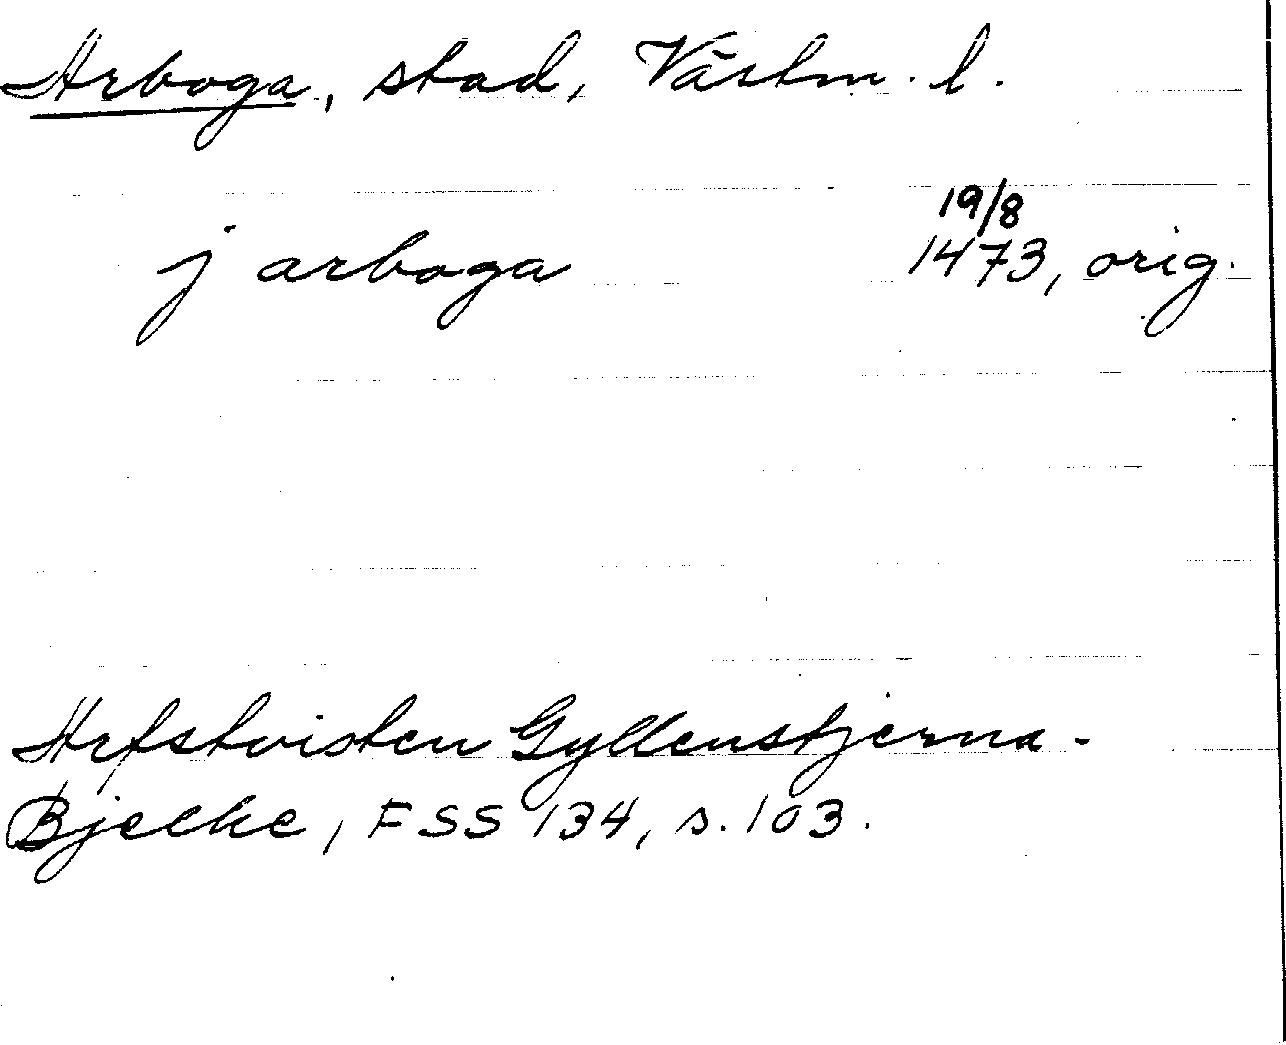 Arboga, stad, Västm. l.
19/8
j arboga 1473, orig.
Arfstvisten Gyllenstjerna-
Bjelke, FSS 134, s. 103.